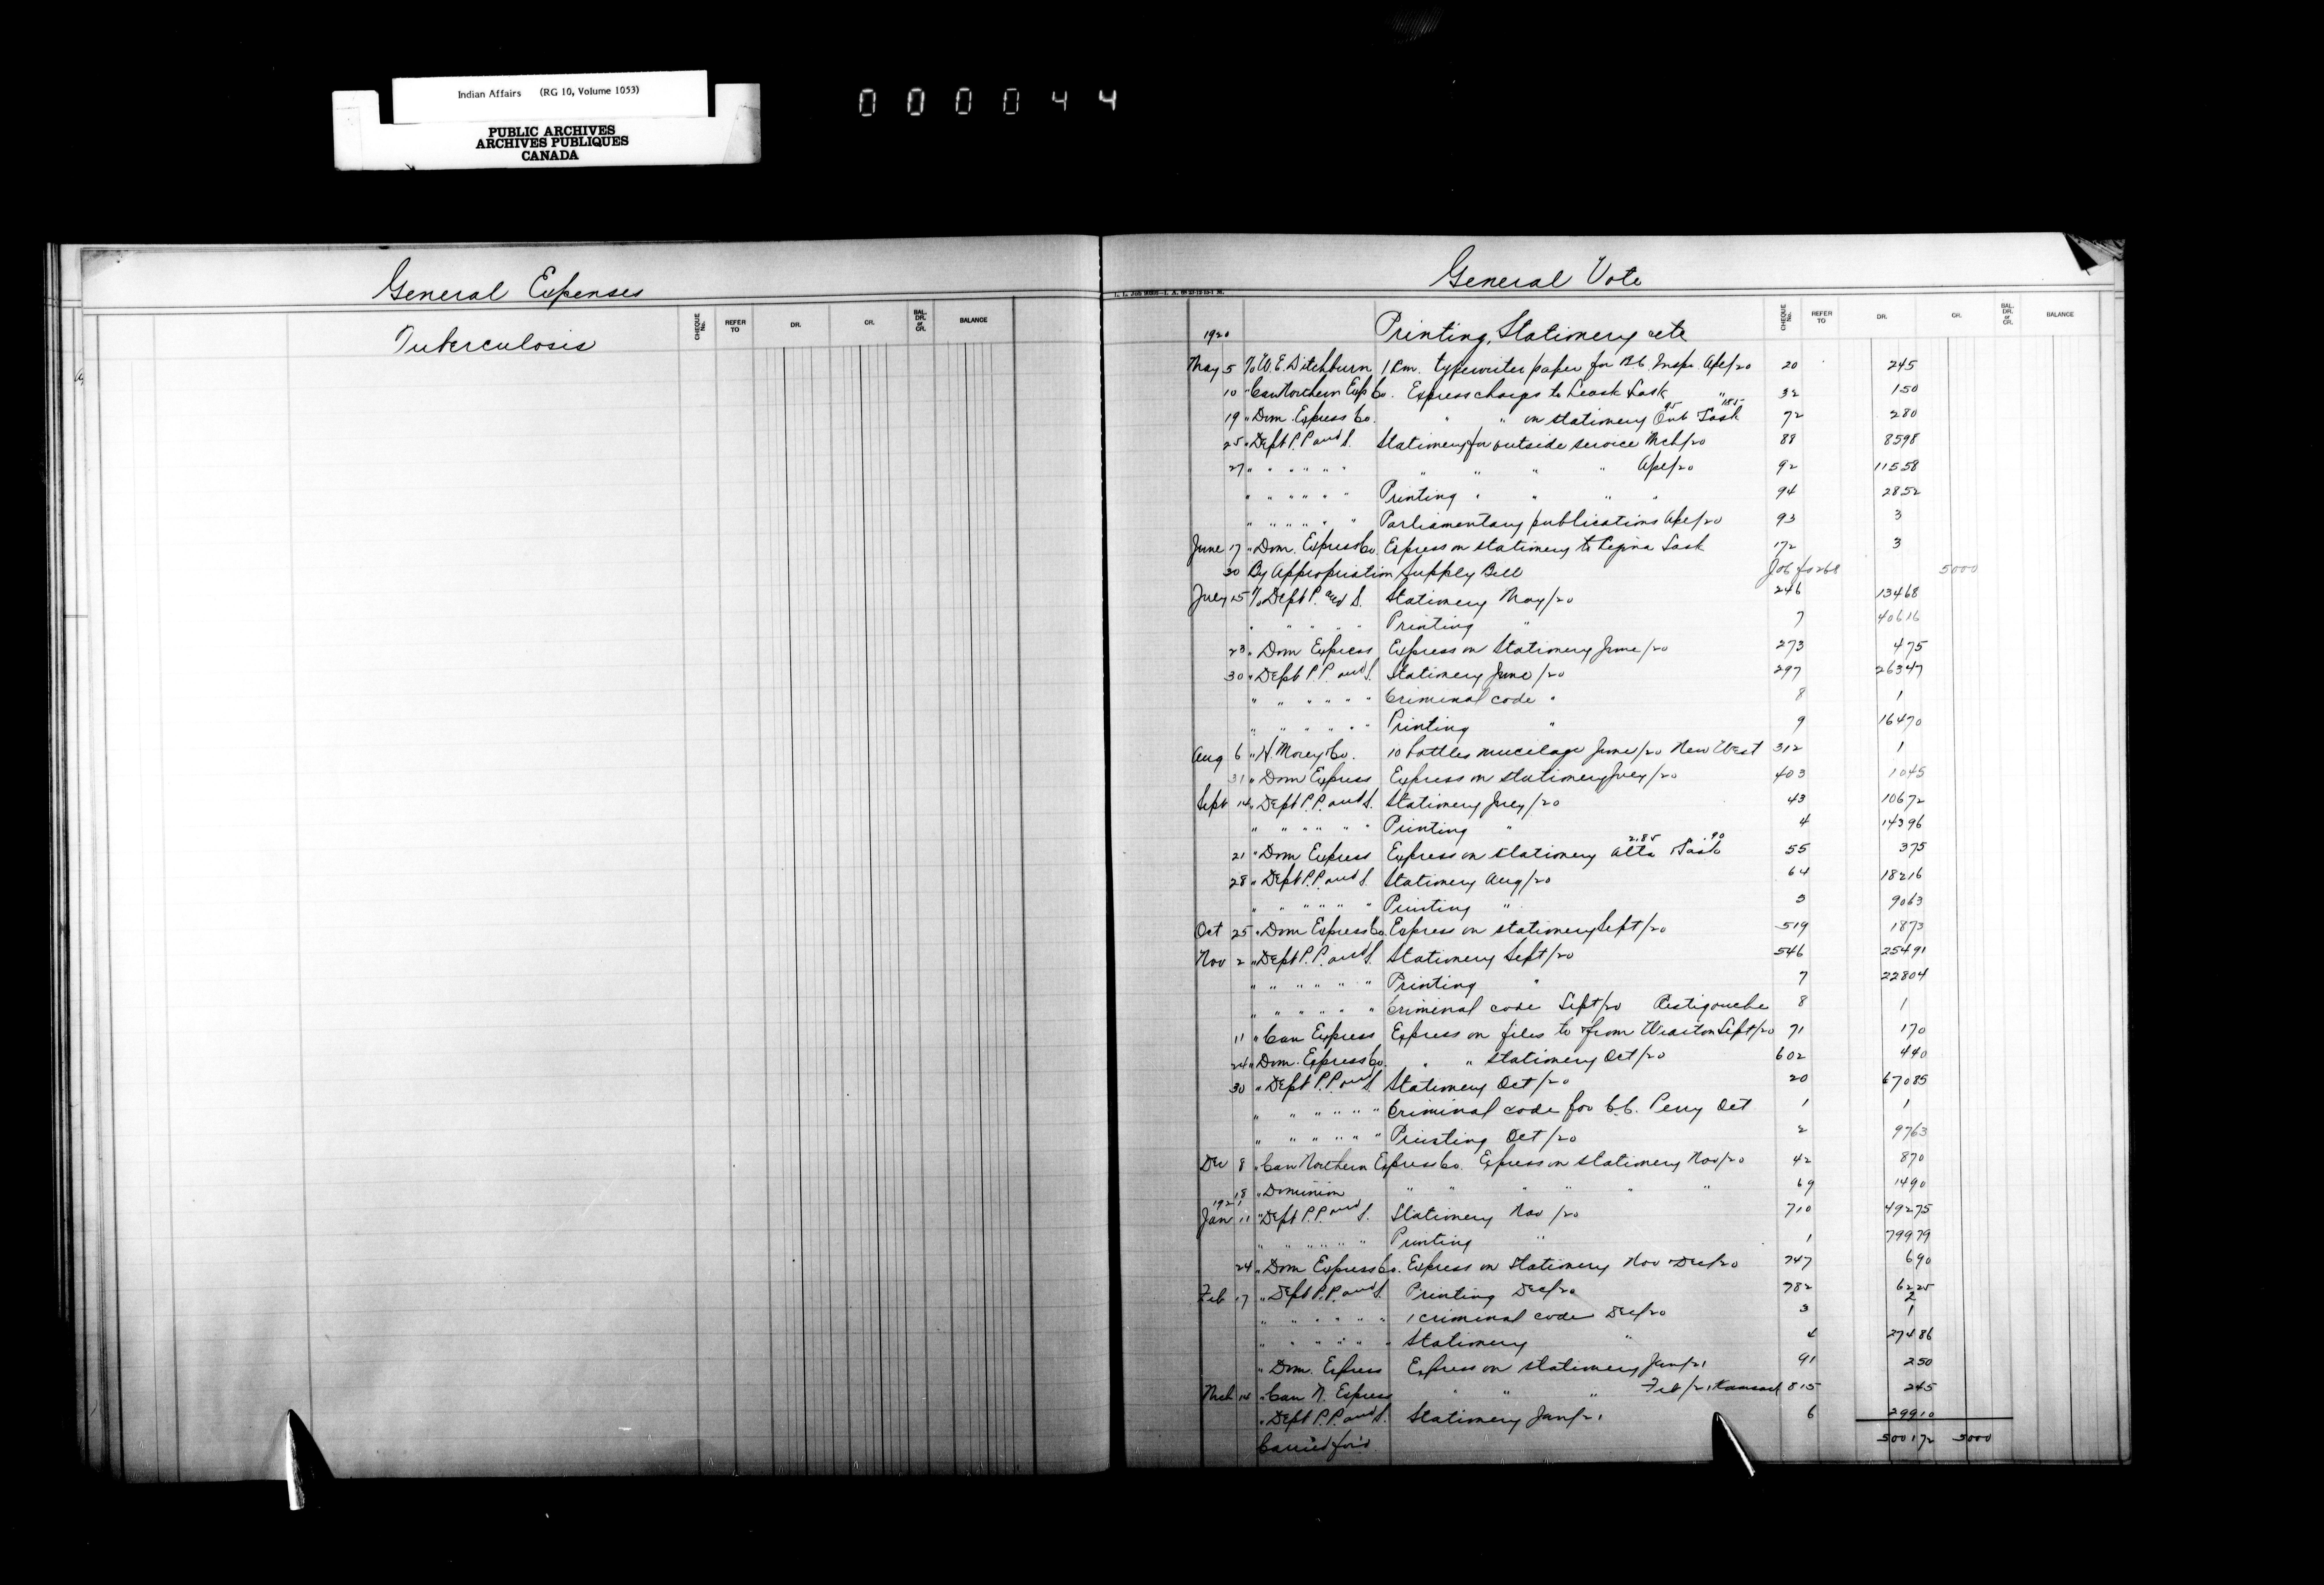 Indian Affairs (RG 10, Volume 1053)
PUBLIC ARCHIVES
ARCHIVES PUBLIQUES
CANADA
000044
General Expenses
Tuberculosis
CHEQUE No. REFER TO DR. CR. BAL. DR. or CR. BALANCE
General Vote
1920 Printing, Stationery etc
CHEQUE No. REFER TO DR. CR. BAL. DR. or CR. BALANCE
May 5 To W. E. Ditchburn 1 Rm. typewriter paper for B.C. Insp. Apl/20 20 245
10 " Can Northern Exp Co. Express charges to Leask Sask " 32 150
19 " Dom. Express Co. " " on stationery Ont 95 Sask 185 72 280
25 " Dept P. P and S. Stationery for outside service Mch/20 88 8598
27 " " " " " " " " " Apl/20 92 11558
" " " " " " Printing " " " " 94 2852
" " " " " " Parliamentary publications Apl/20 93 3
June 17 " Dom. Express Co. Express on stationery to Regina Sask 172 3
30 By Appropriation Supply Bill Job fo 268 5000
July 15 To Dept P. and S. Stationery May/20 246 13468
" " " " " Printing " 7 40616
23 " Dom Express Express on Stationery June/20 273 475
30 " Dept P P and S. Stationery June/20 297 26347
" " " " " " Criminal code " 8 1
" " " " " " Printing " 9 16470
Aug 6 " H. Morey Co. 10 bottles mucilage June/20 New West 312 1
31 " Dom Express Express on stationery July/20 403 1045
Sept 14 " Dept P. P. and S. Stationery July/20 43 10672
" " " " " " Printing " 4 14396
21 " Dom Express Express on stationery Alta 2.85 Sask 90 55 375
28 " Dept P.P. and S. Stationery Aug/20 64 18216
" " " " " " Printing " 5 9063
Oct 25 " Dom Express Co. Express on stationery Sept/20 519 1873
Nov 2 " Dept P. P. and S. Stationery Sept/20 546 25491
" " " " " " Printing " 7 22804
" " " " " " Criminal code Sept/20 Restigouche 8 1
11 " Can Express Express on files to & from Wiarton Sept/20 71 170
24 " Dom. Express Co. " " stationery Oct/20 602 440
30 " Dept P. P and S. Stationery Oct/20 20 67085
" " " " " " Criminal code for C.C. Perry Oct 1 1
" " " " " " Printing Oct/20 2 9763
Dec 8 " Can Northern Express Co. Express on stationery Nov/20 42 870
18 " Dominion " " " " " " 69 1490
1921
Jan 11 " Dept P. P. and S. Stationery Nov/20 710 49275
" " " " " " Printing " 1 79979
24 " Dom Express Co. Express on Stationery Nov & Dec/20 747 690
Feb 17 " Dept P.P. and S. Printing Dec/20 782 6225
" " " " " " 1 criminal code Dec/20 3 1
" " " " " " Stationery " 4 27486
" Dom. Express Express on stationery Jan/21 91 250
Mch 14 " Can N. Express " " " Feb/21 Kamsack 815 245
" Dept P.P. and S. Stationery Jan/21 6 29910
Carried for'd 500172 5000